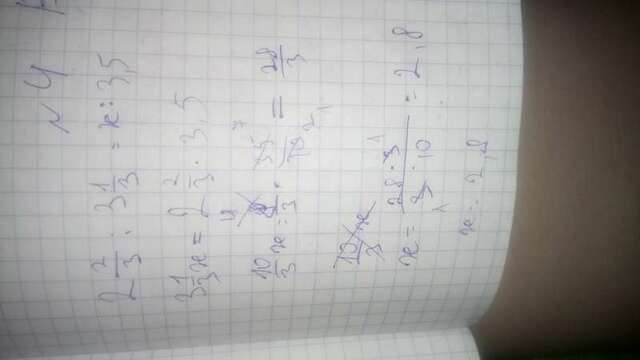 N 4
2 2/3 : 3 1/3 = x : 3,5
3 1/3 x = 2 2/3 · 3,5
10/3 x = 8/3 · 35/10 = 28/3
10 x/3
x = 28·3/3·10 = 2,8
x = 2,8